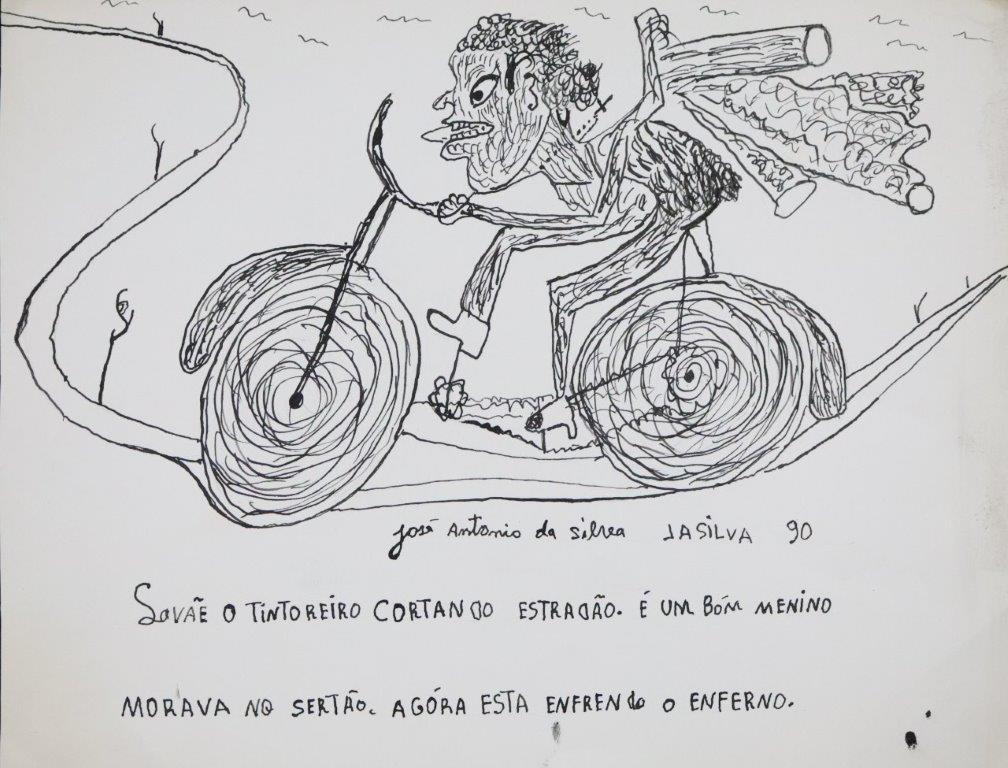 José Antonio da Silva JASILVA 90
SAVÃE O TINTOREIRO CORTANDO ESTRADÃO. É UM BÓM MENINO
MORAVA NO SERTÃO. AGÓRA ESTA ENFRENDO O ENFERNO.